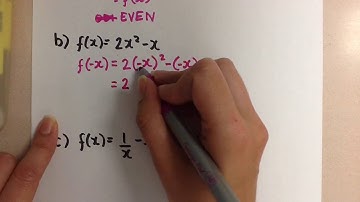 EVEN
b) f(x) = 2x² - x
f(-x) = 2(-x)² - (-x)
= 2
c) f(x) = 1/x -